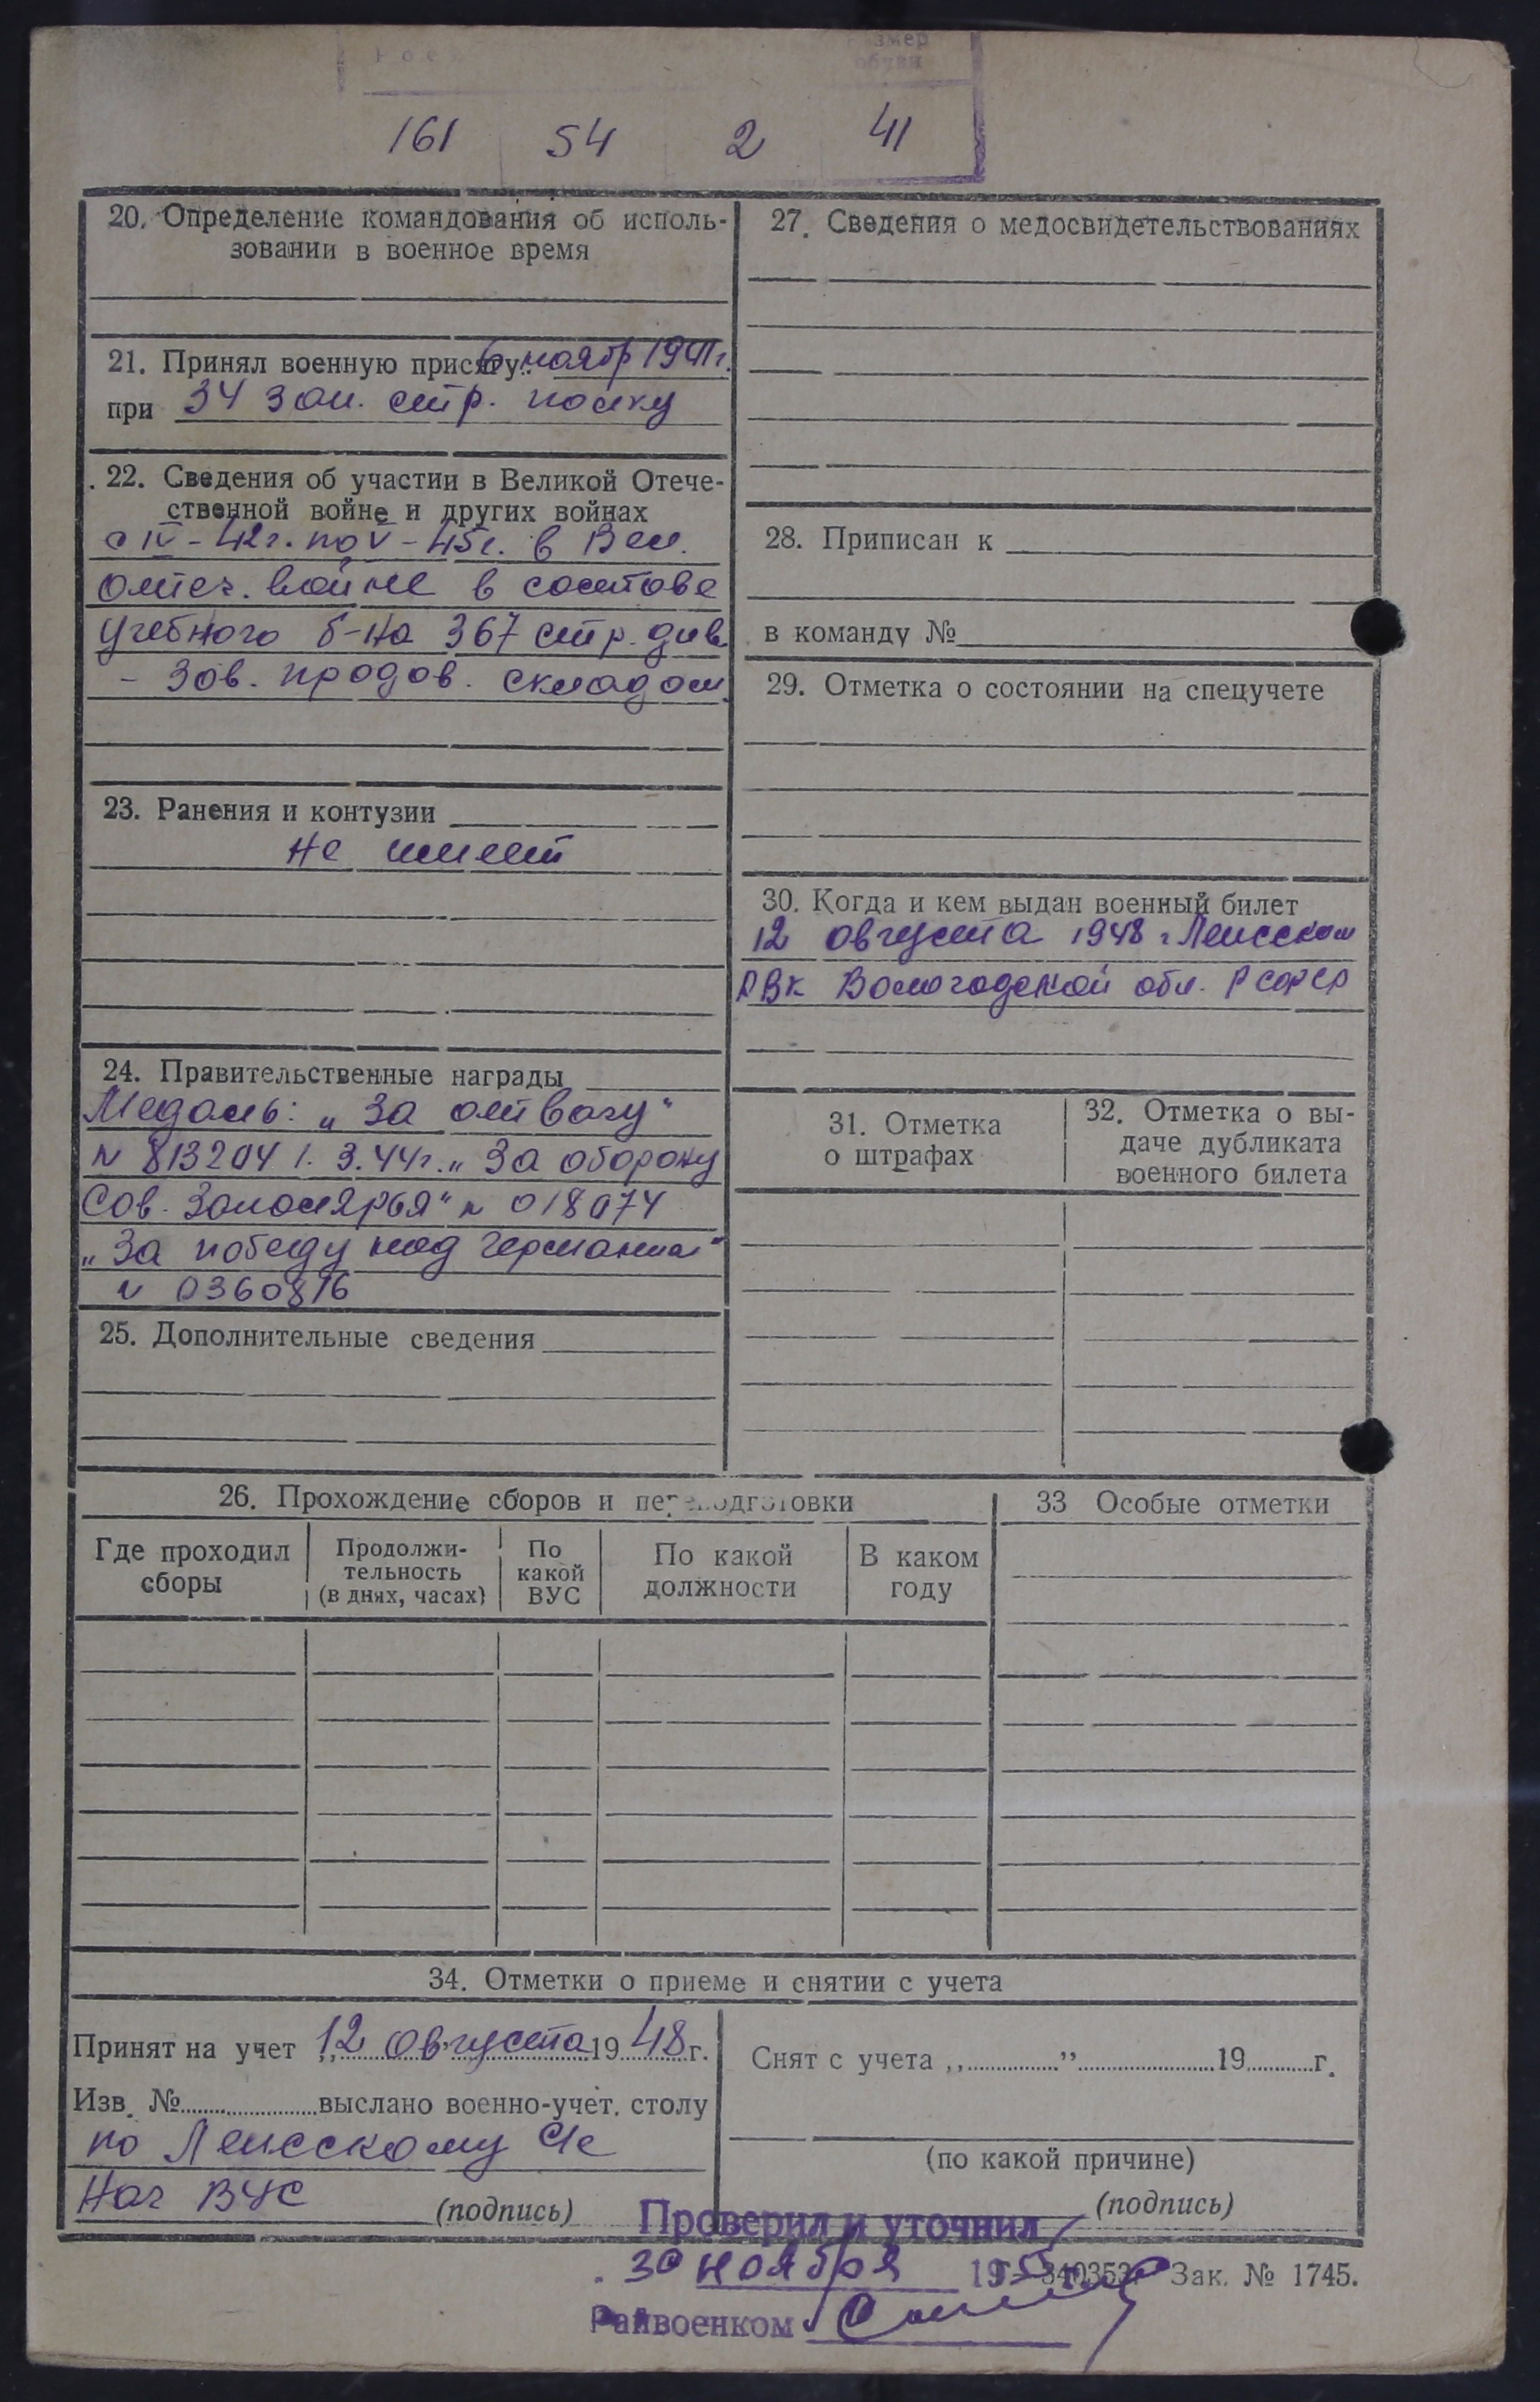 Рос
Размер
обуви
161 54 2 41
20. Определение командования об исполь-
зовании в военное время
21. Принял военную присягу: 6 ноябр 1941 г.
при 34 зап. стр. полку
22. Сведения об участии в Великой Отече-
ственной войне и других войнах
с IV-42г. по V-45г. в Вел.
Отеч. войне в составе
учебного б-на 367 стр. див.
- Зав. продов. складом
23. Ранения и контузии
не имеет
24. Правительственные награды
Медаль: „За отвагу"
N 813204 1.3.44г. „За оборону
Сов. Заполярья" N 018074
„За победу над Германией"
N 0360816
25. Дополнительные сведения
27. Сведения о медосвидетельствованиях
28. Приписан к
в команду №
29. Отметка о состоянии на спецучете
30. Когда и кем выдан военный билет
12 августа 1948 г.
РВК Вологодской обл. РСФСР
31. Отметка
о штрафах
32. Отметка о вы-
даче дубликата
военного билета
26. Прохождение сборов и переподготовки
Где проходил
сборы
Продолжи-
тельность
(в днях, часах)
По
какой
ВУС
По какой
должности
В каком
году
33 Особые отметки
34. Отметки о приеме и снятии с учета
Принят на учет „12 августа 1948 г.
Изв. № выслано военно-учет. столу
по с/с
Нач ВУС (подпись)
Снят с учета „ ” 19 г.
(по какой причине)
(подпись)
Проверил и уточнил
30 ноября 195
Зак. № 1745.
Райвоенком